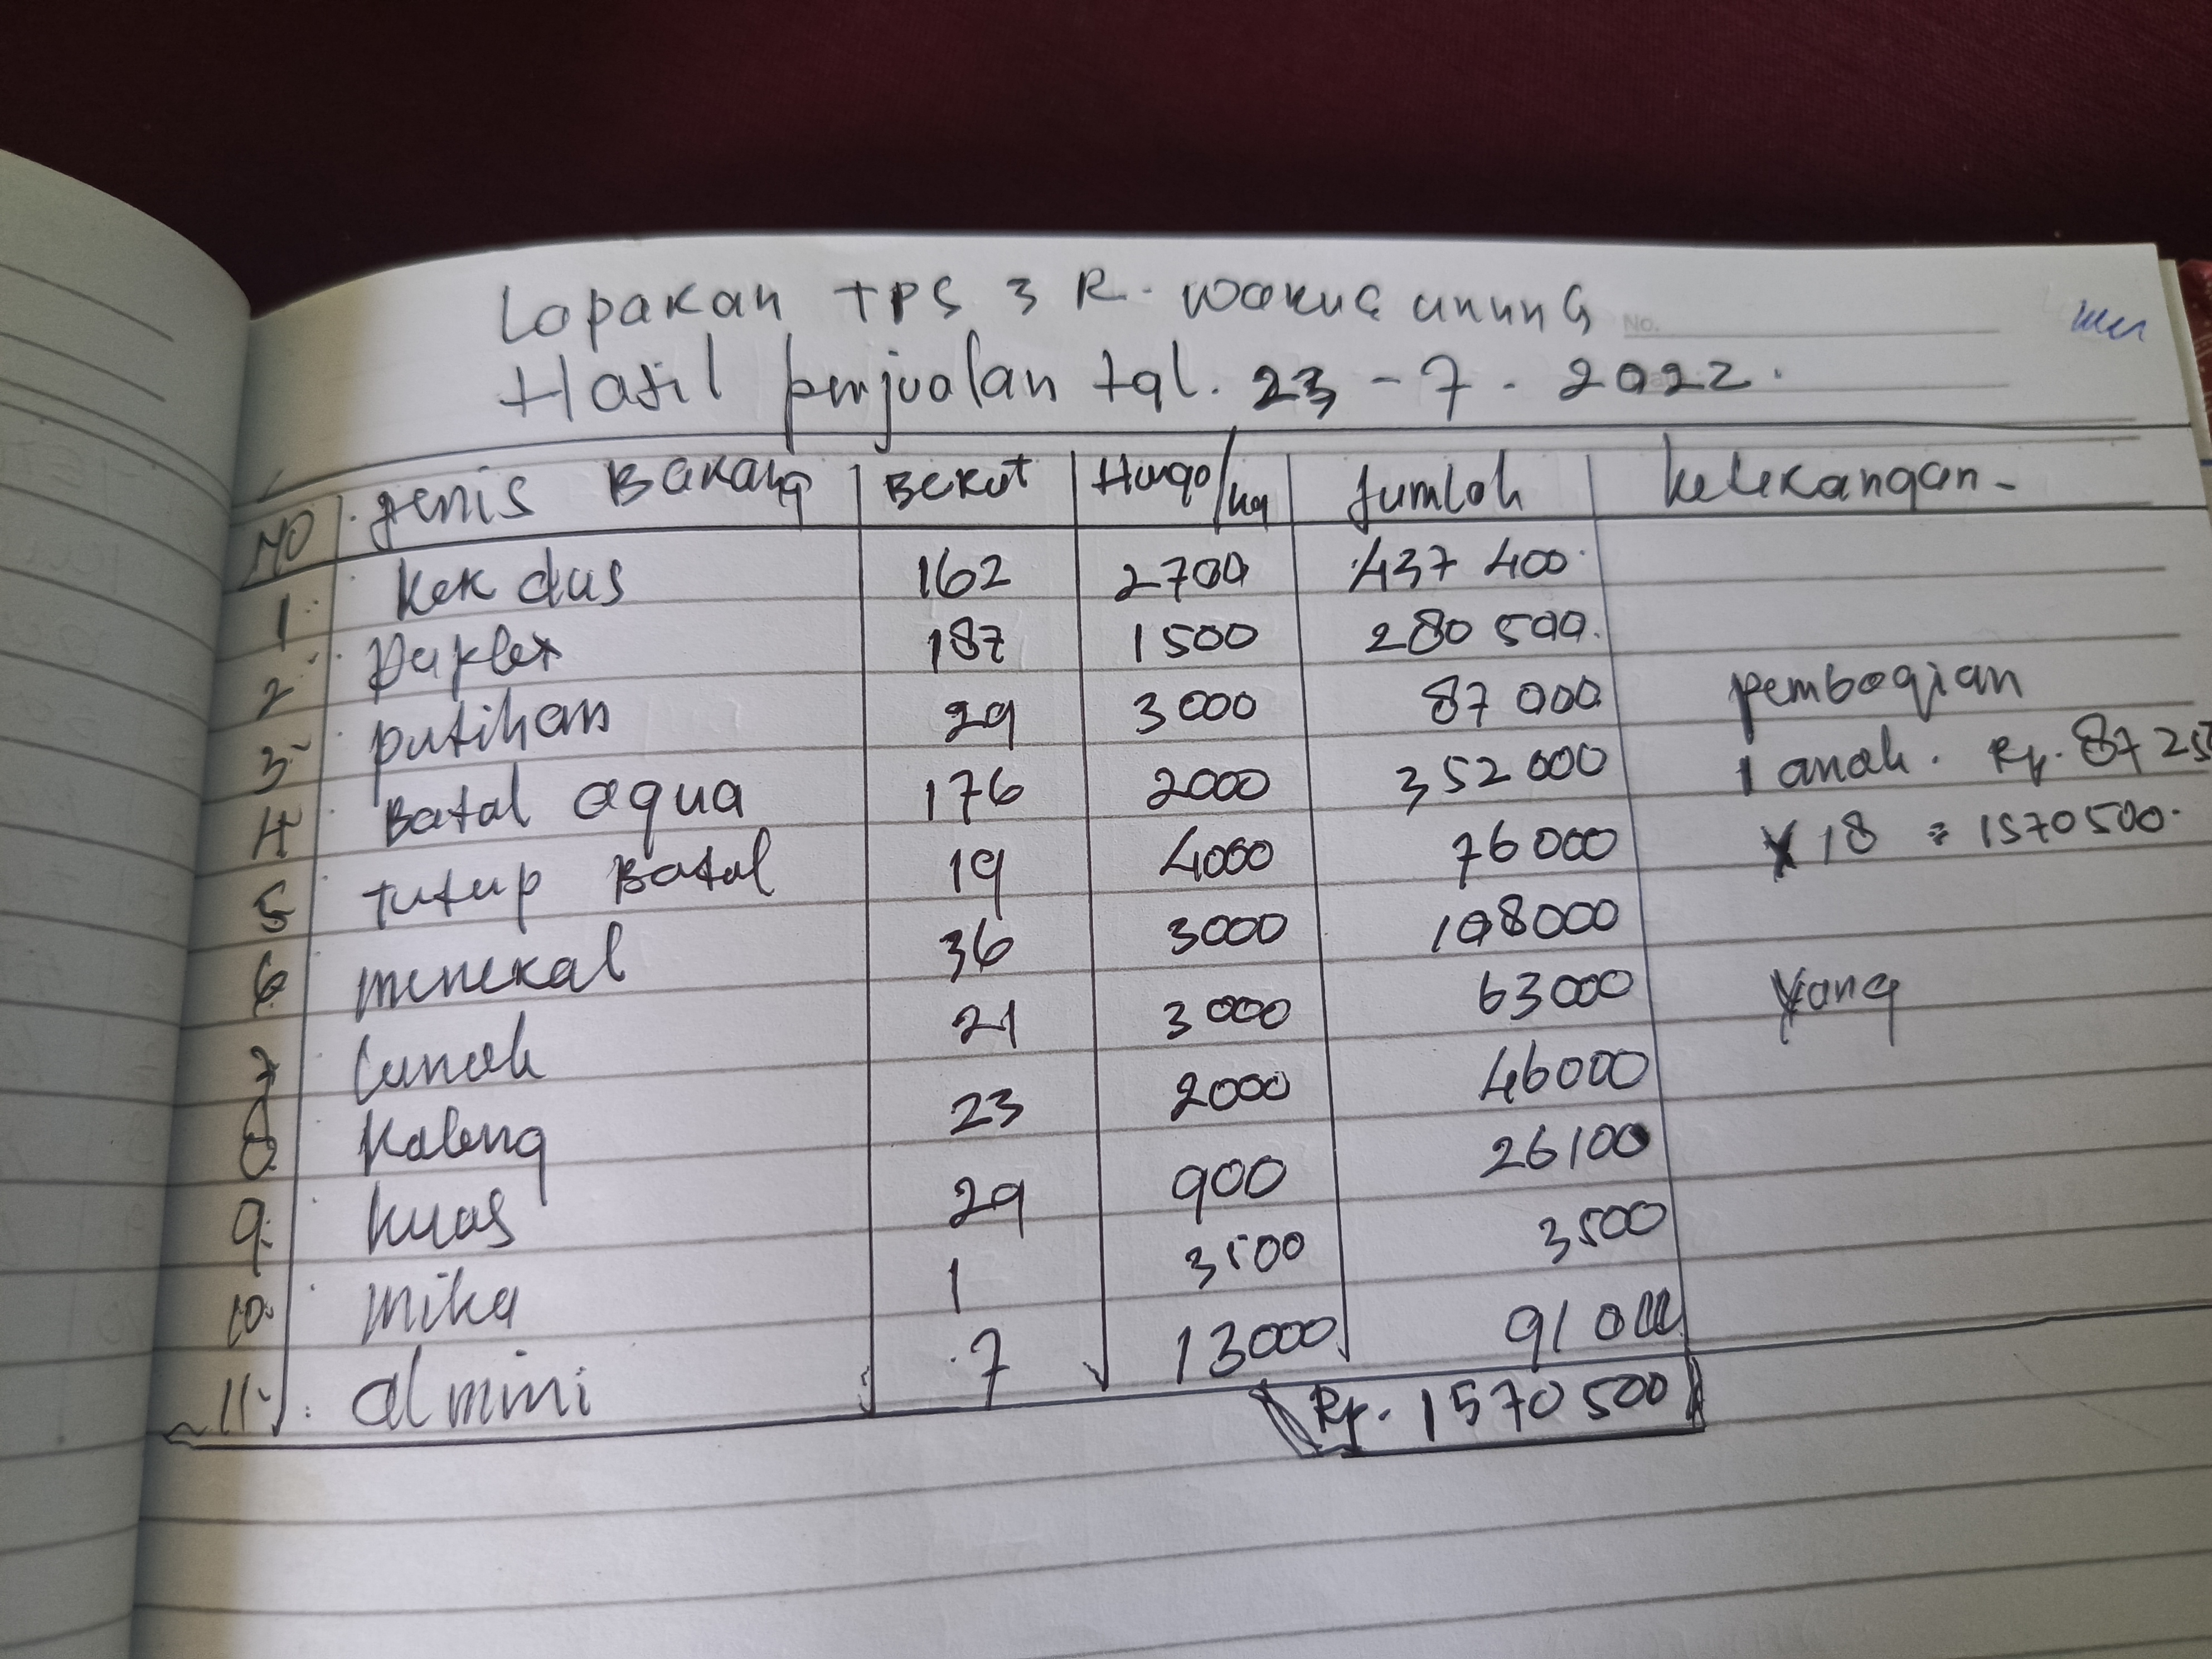 Lapakan TPS 3 R. Wakuc unung
No.
Hasil penjualan tgl. 23 - 7 - 2022.
NO Jenis Barang Berat Harga/kg Jumlah keterangan -
1. Kerdus 162 2700 437 400
2. Duplex 187 1500 280 500
3. putihan 29 3000 87 000 pembagian
4 Botol aqua 176 2000 352 000 1 anak. Rp. 87 25
5 tutup Botol 19 4000 76 000 X 18 = 1570 500.
6 menekal 36 3000 108 000
7 lunak 21 3000 63 000 Yang
8 Kaleng 23 2000 46 000
9. kuas 29 900 26 100
10. mika 1 3500 3 500
11. al mini 7 13 000 91 000
Rp. 1570 500